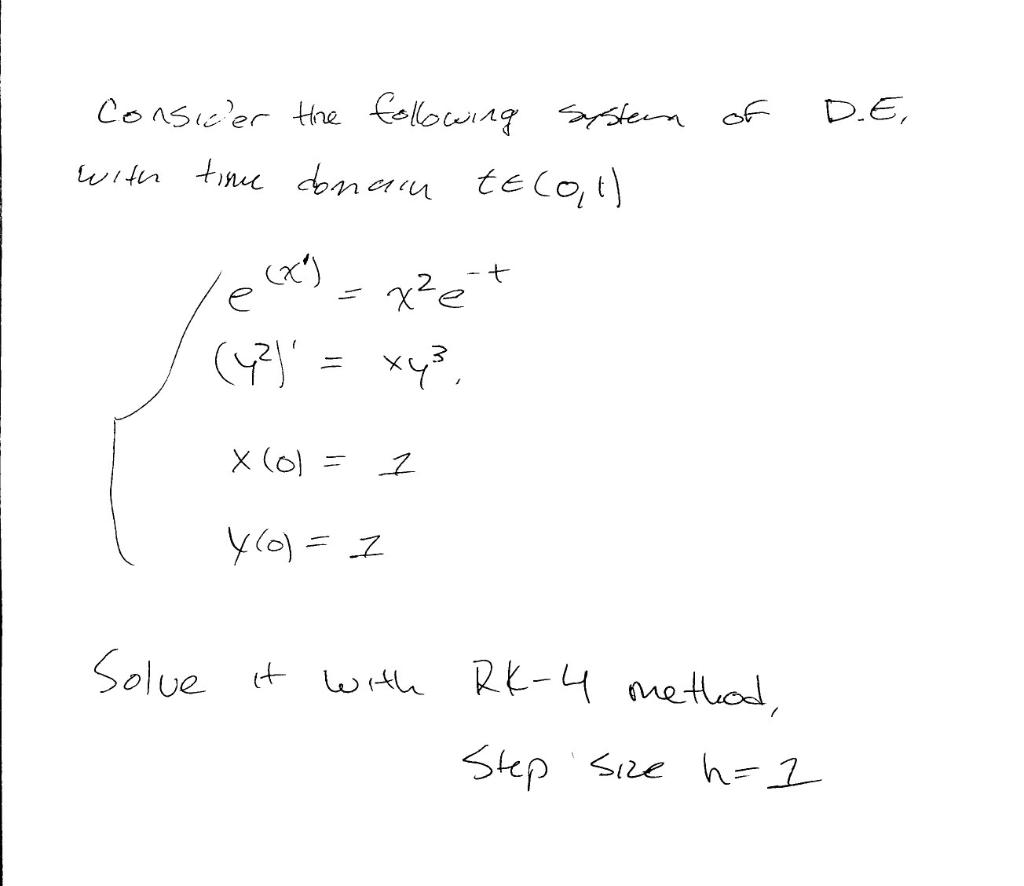 Consider the following system of D.E,
with time domain t∈(0,1)
e^(x') = x²e^-t
(y²)' = xy³,
x(0) = 1
y(0) = 1
Solve it with RK-4 method,
Step size h=1